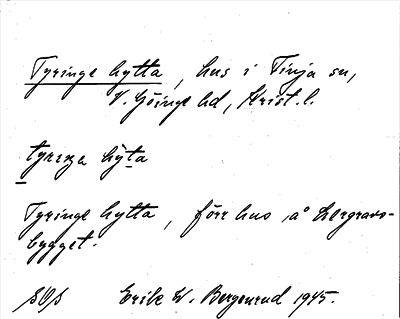 Tyringe hytta, hus i Finja sn,
V. Göinge hd, Krist. l.
Tyringe hytta, förr hus å Lergravs-
bygget.
Erik W. Bergenrud 1945.